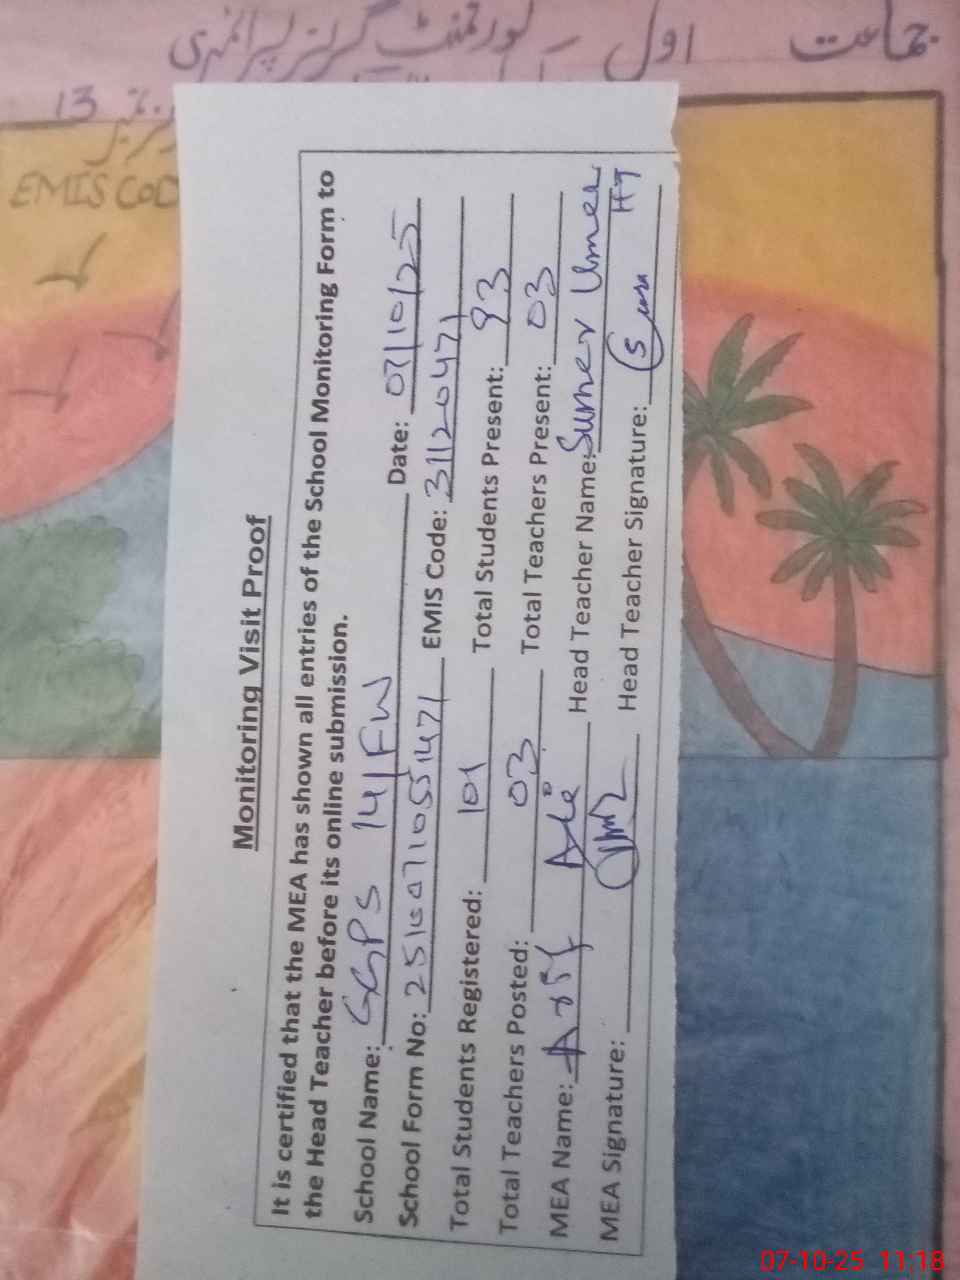 جماعت اول گورنمنٹ گرلز پرائمری
13
EMIS COD
Monitoring Visit Proof
It is certified that the MEA has shown all entries of the School Monitoring Form to
the Head Teacher before its online submission.
School Name: GGPS 141FW Date: 07/10/25
School Form No: EMIS Code: 31120471
Total Students Registered: 101 Total Students Present: 93
Total Teachers Posted: 03 Total Teachers Present: 03
MEA Name: Asif Ali Head Teacher Name: Sumer Umer
MEA Signature: Head Teacher Signature: HT
07-10-25 11:18